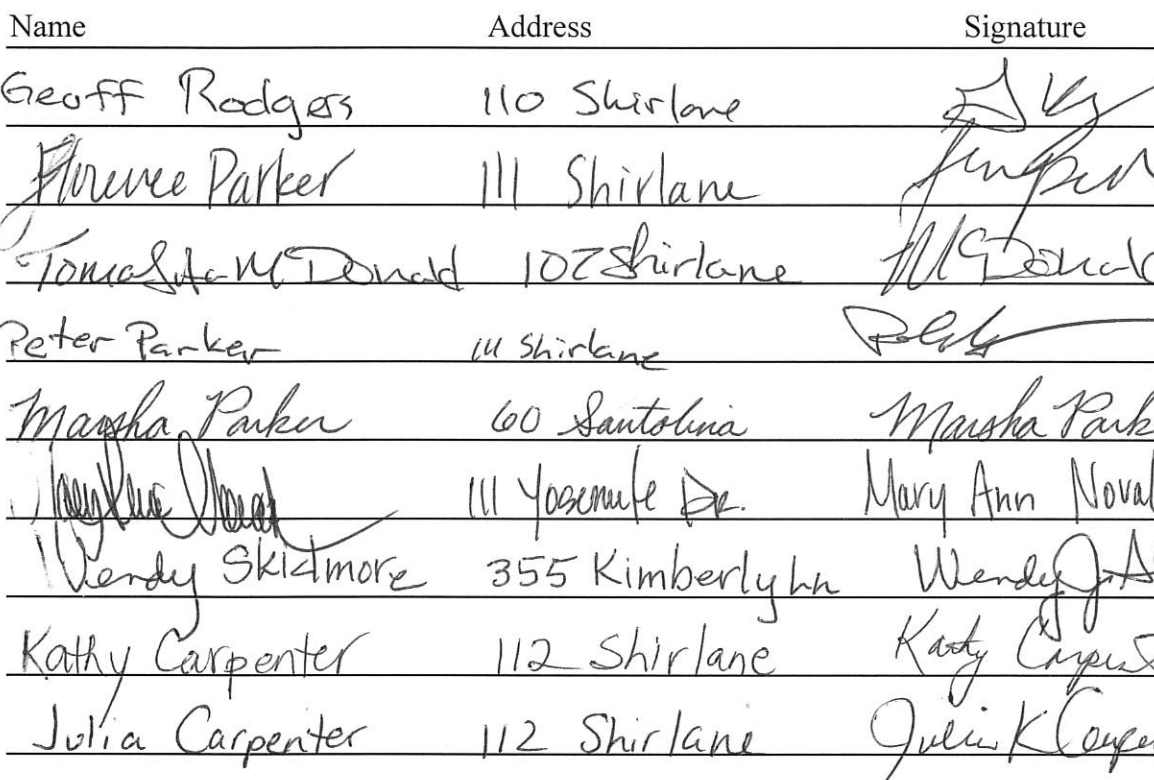 Name Address Signature
Geoff Rodgers 110 Shirlane
Florence Parker 111 Shirlane
McDonald 107 Shirlane McDonald
Peter Parker 111 Shirlane
Marsha Parker 60 Santolina Marsha Park
111 Yosemite Dr. Mary Ann Noval
Wendy Skidmore 355 Kimberly Ln Wendy J
Kathy Carpenter 112 Shirlane Kathy Carpent
Julia Carpenter 112 Shirlane Julia K Carpen